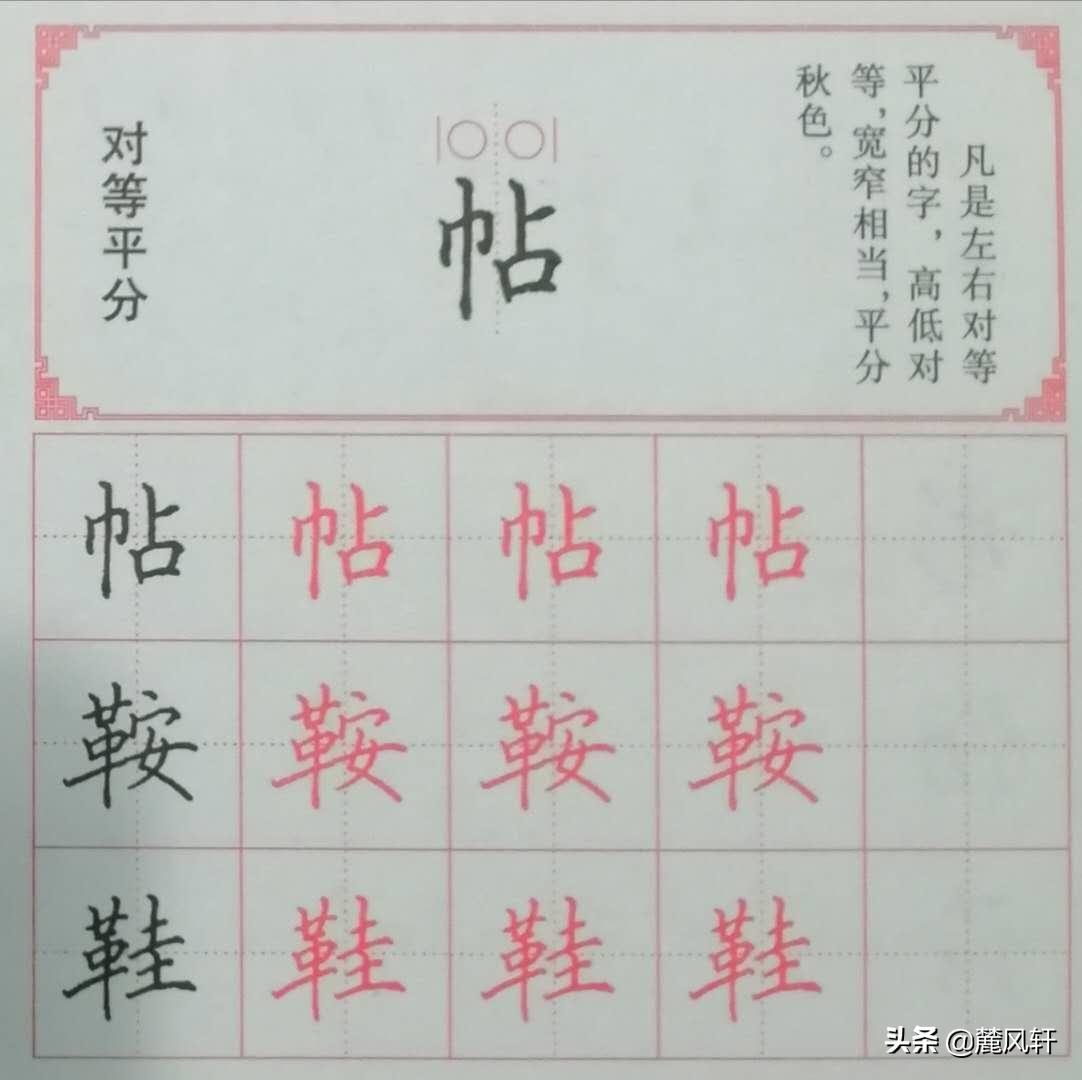 对等平分
帖
凡是左右对等
平分的字，高低对
等，宽窄相当，平分
秋色。
帖 帖 帖 帖
鞍 鞍 鞍 鞍
鞋 鞋 鞋 鞋
头条 @麓风轩